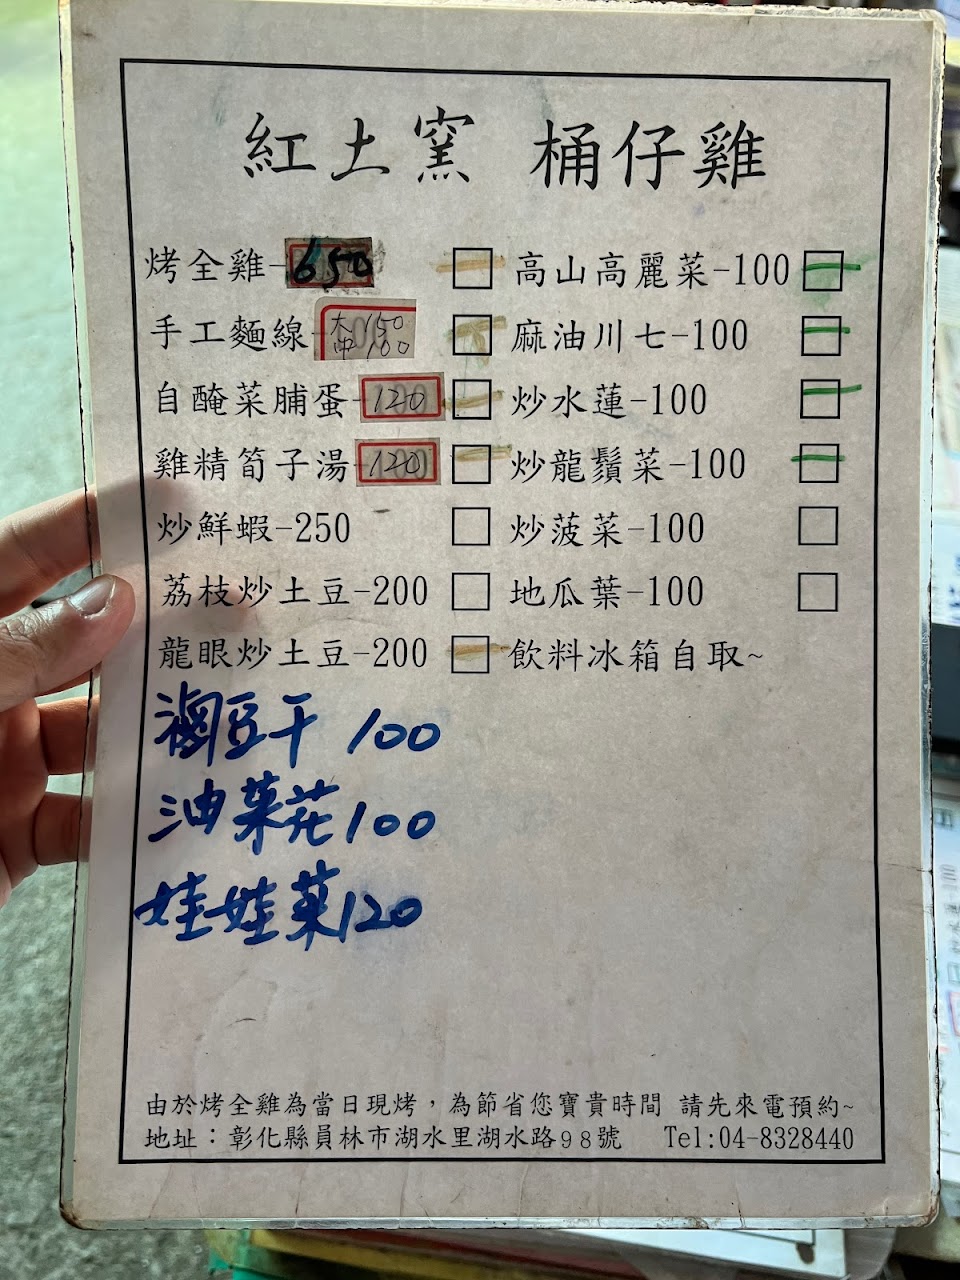 紅土窯 桶仔雞
烤全雞-650
手工麵線-大150
中100
自醃菜脯蛋-120
雞精筍子湯-120
炒鮮蝦-250
荔枝炒土豆-200
龍眼炒土豆-200
滷豆干 100
油菜花100
娃娃菜120
高山高麗菜-100
麻油川七-100
炒水蓮-100
炒龍鬚菜-100
炒菠菜-100
地瓜葉-100
飲料冰箱自取~
由於烤全雞為當日現烤，為節省您寶貴時間 請先來電預約~
地址：彰化縣員林市湖水里湖水路98號 Tel:04-8328440